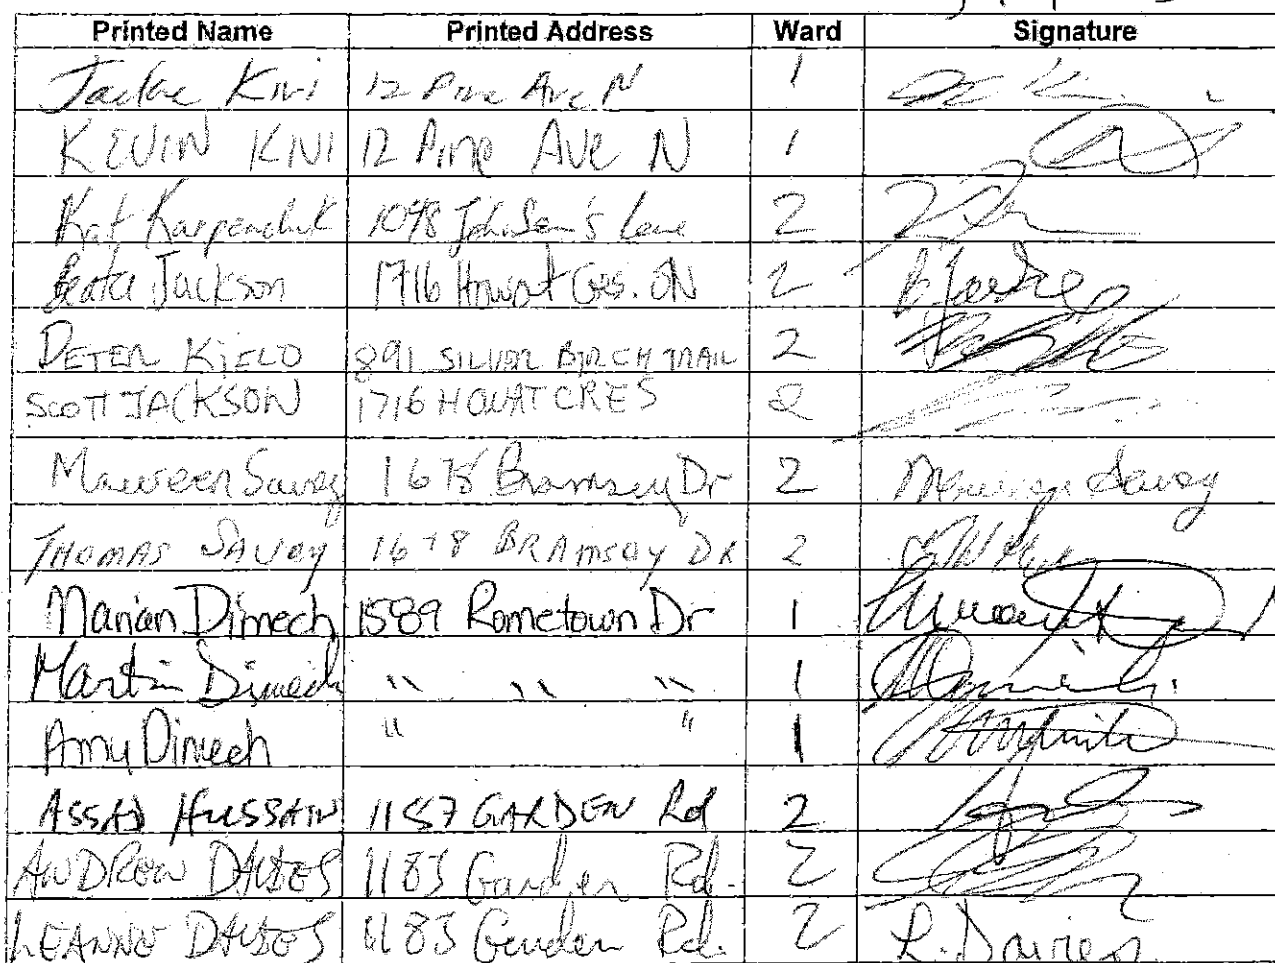 Printed Name Printed Address Ward Signature
Jackie Kivi 12 Pine Ave N 1
KEVIN KIVI 12 Pine Ave N 1
Kat Karpenchuk 1098 Johnson's Lane 2
Beata Jackson 1716 Howat Cres. ON 2
PETER KIELO 891 SILVER BIRCH TRAIL 2
SCOTT JACKSON 1716 HOWAT CRES 2
Maureen Savoy 1678 Bramsey Dr 2 Maureen Savoy
THOMAS SAVOY 1678 BRAMSEY DR 2
Marian Dimech 1589 Rometown Dr 1
Martin Dimech " " " 1
Amy Dimech " " 1
ASSAD HUSSAIN 1187 GARDEN Rd 2
ANDREW DAVIES 1183 Garden Rd. 2
LEANNE DAVIES 1183 Garden Rd. 2 L. Davies